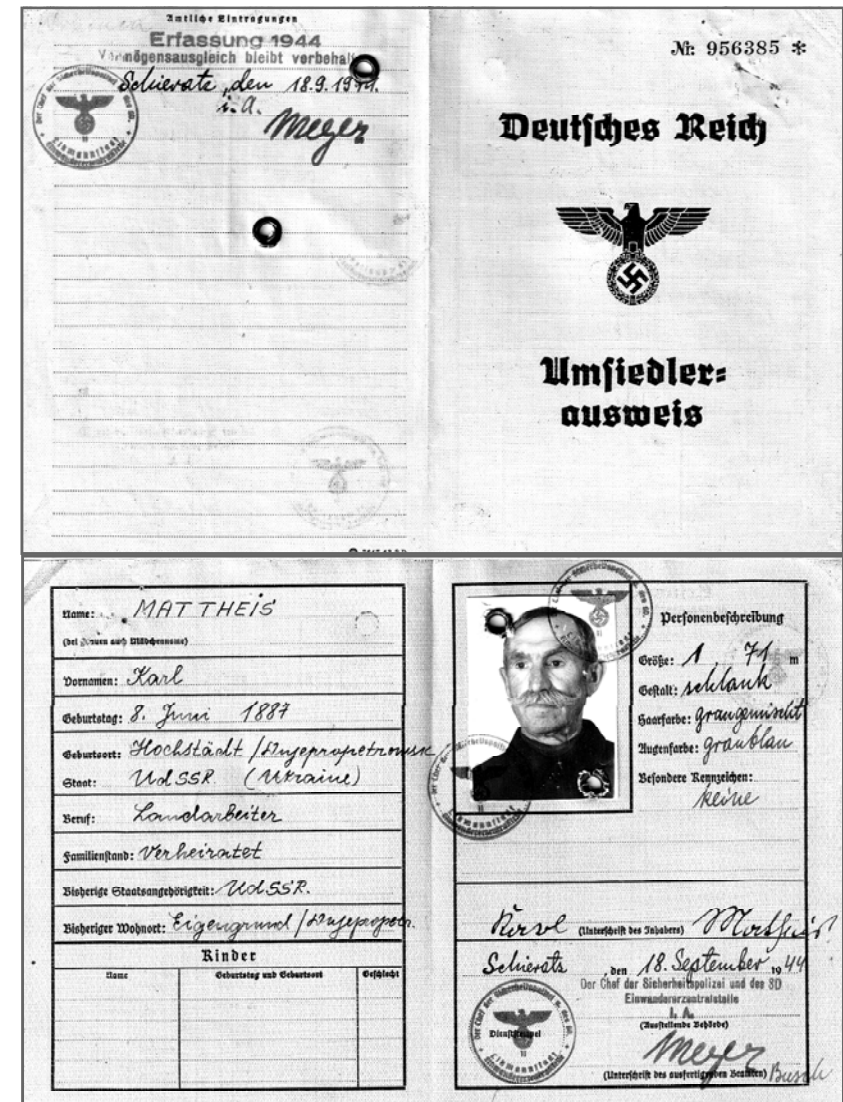 Amtliche Eintragungen
Erfassung 1944
Vermögensausgleich bleibt vorbehal
Schieratz, den 18.9.1944.
i.A.
Meyer
Nr. 956385 *
Deutsches Reich
Umsiedler=
ausweis
Name: MATTHEIS
(bei Frauen auch Mädchenname)
Vornamen: Karl
Geburtstag: 8. Juni 1887
Geburtsort: Hochstädt / Dnjepropetrowsk
Staat: UdSSR (Ukraine)
Beruf: Landarbeiter
Familienstand: Verheiratet
Bisherige Staatsangehörigkeit: UdSSR.
Bisheriger Wohnort: Eigengrund / Dnjepropetr.
Kinder
Name Geburtstag und Geburtsort Geschlecht
Personenbeschreibung
Größe: 1, 71 m
Gestalt: schlank
Haarfarbe: graugemischt
Augenfarbe: graublau
Besondere Kennzeichen:
keine
Karl (Unterschrift des Inhabers) Mattheis
Schieratz, den 18. September 1944
Der Chef der Sicherheitspolizei und des SD
Einwandererzentralstelle
I. A.
(Ausstellende Behörde)
Dienststempel
Meyer
(Unterschrift des ausfertigenden Beamten) Busch